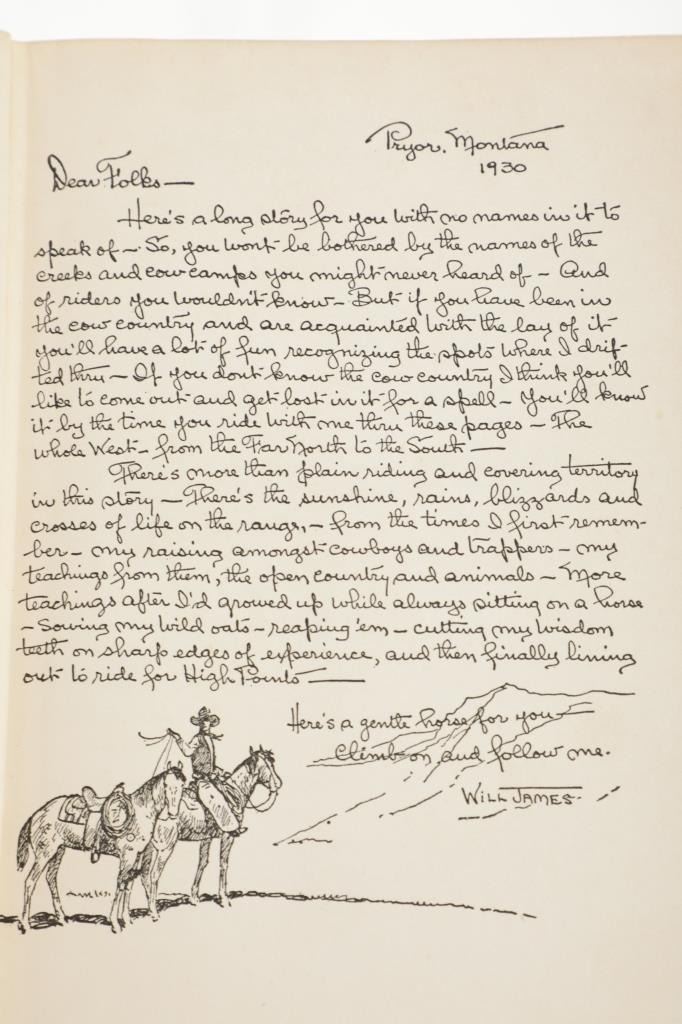 Pryor, Montana
1930
Dear Folks—
Here's a long story for you with no names in it to
speak of — So, you wont be bothered by the names of the
creeks and cow camps you might never heard of — And
of riders you wouldn't know — But if you have been in
the cow country and are acquainted with the lay of it
you'll have a lot of fun recognizing the spots where I drif-
ted thru — If you dont know the cow country I think you'll
like to come out and get lost in it for a spell — You'll know
it by the time you ride with me thru these pages — The
whole West — from the Far North to the South —
There's more than plain riding and covering territory
in this story — There's the sunshine, rains, blizzards and
crosses of life on the range, — from the times I first remem-
ber — my raising amongst cowboys and trappers — my
teachings from them, the open country and animals — More
teachings after I'd growed up while always sitting on a horse
— Sowing my wild oats — reaping 'em — cutting my wisdom
teeth on sharp edges of experience, and then finally lining
out to ride for High Points —
Here's a gentle horse for you —
Climb on and follow me.
WILL JAMES.